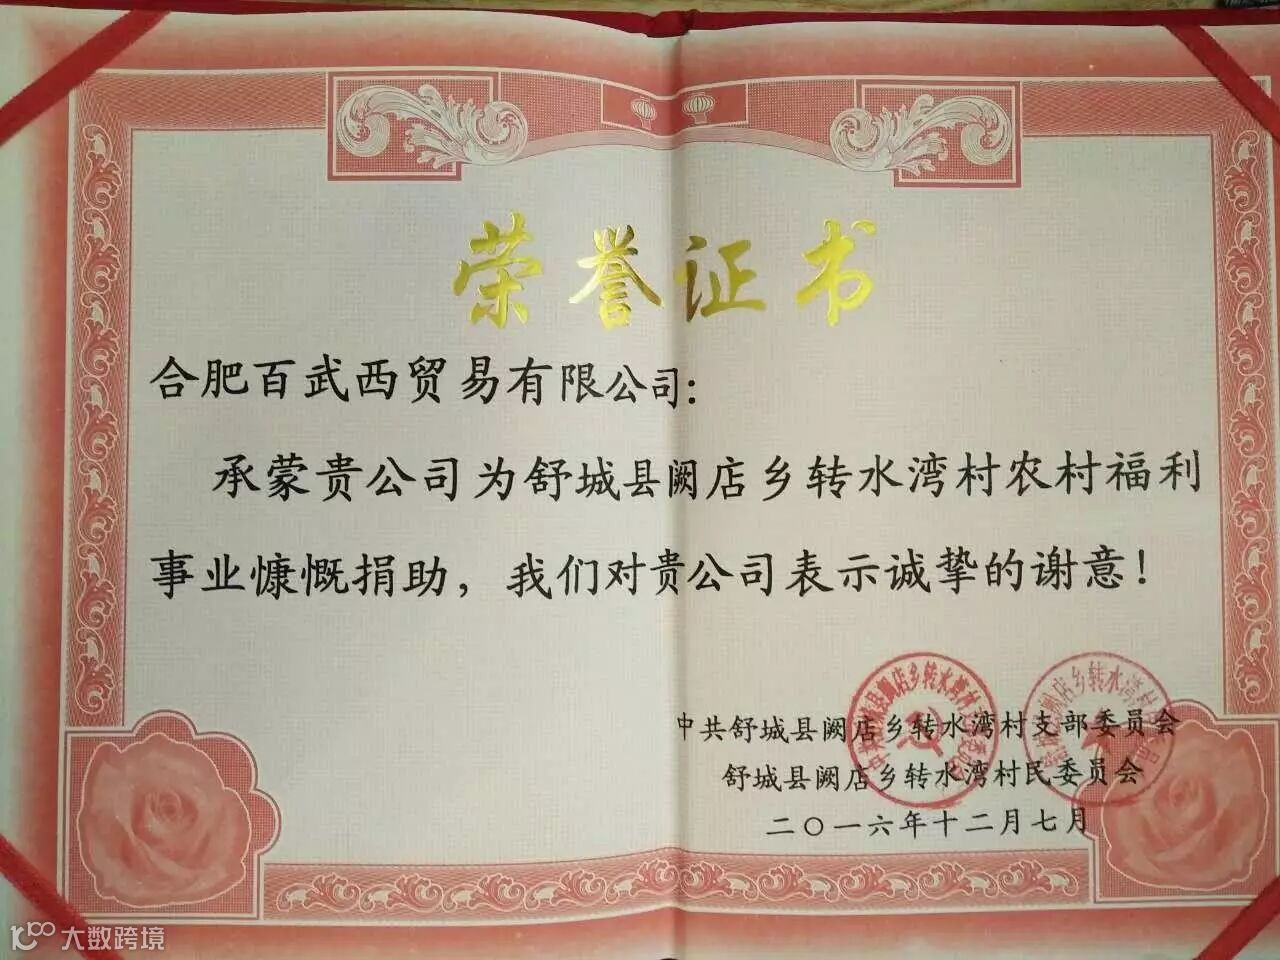 荣誉证书
合肥百武西贸易有限公司：
承蒙贵公司为舒城县阙店乡转水湾村农村福利
事业慷慨捐助，我们对贵公司表示诚挚的谢意！
中共舒城县阙店乡转水湾村支部委员会
舒城县阙店乡转水湾村民委员会
二〇一六年十二月七月
大数跨境